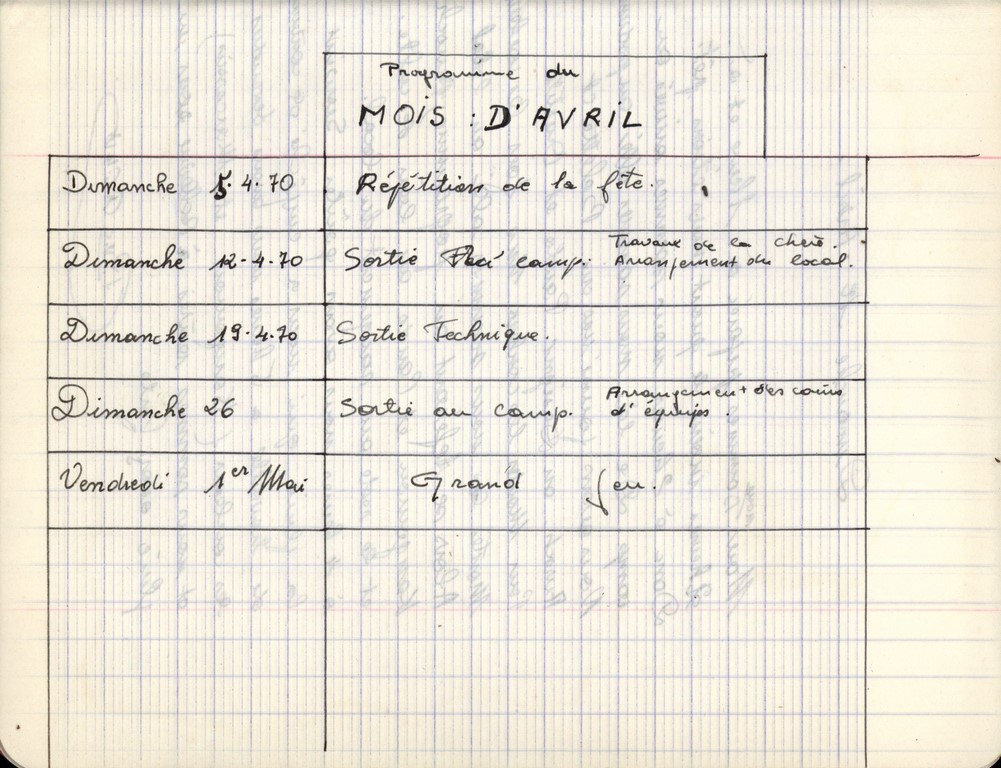 Programme du
MOIS : D'AVRIL
Dimanche 5.4.70 Répétition de la fête.
Dimanche 12.4.70 Sortie camp. Travaux de la
Arrangement du local.
Dimanche 19.4.70 Sortie Technique.
Dimanche 26 Sortie au camp. Arrangement des coins
d'équipes.
Vendredi 1er Mai Grand Jeu.